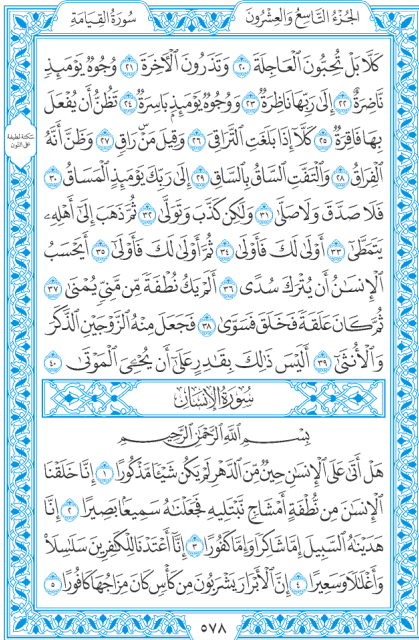 سُورَةُ القِيَامَةِ
الجُزْءُ التَّاسِعُ وَالعِشْرُونَ
كَلَّا بَلْ تُحِبُّونَ ٱلْعَاجِلَةَ ٢٠ وَتَذَرُونَ ٱلْأٓخِرَةَ ٢١ وُجُوهٌ يَوْمَئِذٍ
نَّاضِرَةٌ ٢٢ إِلَىٰ رَبِّهَا نَاظِرَةٌ ٢٣ وَوُجُوهٌ يَوْمَئِذٍۭ بَاسِرَةٌ ٢٤ تَظُنُّ أَن يُفْعَلَ
بِهَا فَاقِرَةٌ ٢٥ كَلَّآ إِذَا بَلَغَتِ ٱلتَّرَاقِىَ ٢٦ وَقِيلَ مَنْ رَاقٍ ٢٧ وَظَنَّ أَنَّهُ
ٱلْفِرَاقُ ٢٨ وَٱلْتَفَّتِ ٱلسَّاقُ بِٱلسَّاقِ ٢٩ إِلَىٰ رَبِّكَ يَوْمَئِذٍ ٱلْمَسَاقُ ٣٠
فَلَا صَدَّقَ وَلَا صَلَّىٰ ٣١ وَلَٰكِن كَذَّبَ وَتَوَلَّىٰ ٣٢ ثُمَّ ذَهَبَ إِلَىٰٓ أَهْلِهِۦ
يَتَمَطَّىٰٓ ٣٣ أَوْلَىٰ لَكَ فَأَوْلَىٰ ٣٤ ثُمَّ أَوْلَىٰ لَكَ فَأَوْلَىٰٓ ٣٥ أَيَحْسَبُ
ٱلْإِنسَٰنُ أَن يُتْرَكَ سُدًى ٣٦ أَلَمْ يَكُ نُطْفَةً مِّن مَّنِىٍّ يُمْنَىٰ ٣٧
ثُمَّ كَانَ عَلَقَةً فَخَلَقَ فَسَوَّىٰ ٣٨ فَجَعَلَ مِنْهُ ٱلزَّوْجَيْنِ ٱلذَّكَرَ
وَٱلْأُنثَىٰٓ ٣٩ أَلَيْسَ ذَٰلِكَ بِقَٰدِرٍ عَلَىٰٓ أَن يُحْـِۧىَ ٱلْمَوْتَىٰ ٤٠
سُورَةُ الإِنسَانِ
بِسْمِ ٱللَّهِ ٱلرَّحْمَٰنِ ٱلرَّحِيمِ
هَلْ أَتَىٰ عَلَى ٱلْإِنسَٰنِ حِينٌ مِّنَ ٱلدَّهْرِ لَمْ يَكُن شَيْـًٔا مَّذْكُورًا ١ إِنَّا خَلَقْنَا
ٱلْإِنسَٰنَ مِن نُّطْفَةٍ أَمْشَاجٍ نَّبْتَلِيهِ فَجَعَلْنَٰهُ سَمِيعًۢا بَصِيرًا ٢ إِنَّا
هَدَيْنَٰهُ ٱلسَّبِيلَ إِمَّا شَاكِرًا وَإِمَّا كَفُورًا ٣ إِنَّآ أَعْتَدْنَا لِلْكَٰفِرِينَ سَلَٰسِلَا۟
وَأَغْلَٰلًا وَسَعِيرًا ٤ إِنَّ ٱلْأَبْرَارَ يَشْرَبُونَ مِن كَأْسٍ كَانَ مِزَاجُهَا كَافُورًا ٥
سَكتة لطيفة
على النون
٥٧٨